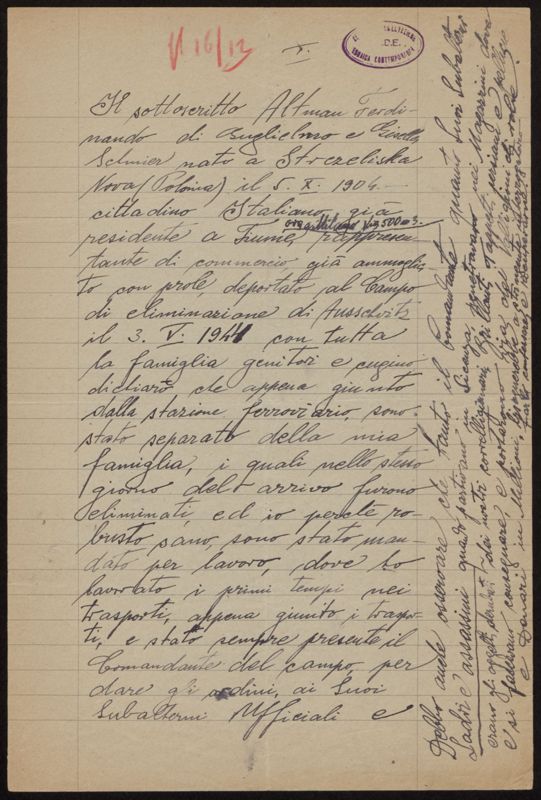 V 16/12
I.
Il sottoscritto Altman Ferdi-
nando di Guglielmo e Gisella
Schnier nato a Strzeliska
Nova (Polonia) il 5. X. 1904.
cittadino Italiano, già
residente a Fiume, rappresen
tante di commercio già ammoglia
to con prole, deportato al Campo
di eliminazione di Ausschvitz
il 3. V. 1944 con tutta
la famiglia genitori e cugino
dichiaro che appena giunto
dalla stazione ferroviario, sono
stato separato della mia
famiglia, i quali nello stesso
giorno del arrivo furono
eliminati, ed io perchè ro
busto, sano, sono stato man
dato per lavoro, dove ho
lavorato i primi tempi nei
trasporti, appena giunto i traspo-
ti, e stato sempre presente il
Comandante del campo, per
dare gli ordini, ai Suoi
Subalterni Ufficiali e
Debbo anche osservare che tanto il Comandante quanto Suoi Subalterni
Ladri e assassini quando partivano in licenza, penetravano nei Magazzini dove
erano gli oggetti dei nostri correlligionari Brillanti
e si facevano consegnare, e portarono
e Denari in Millioni